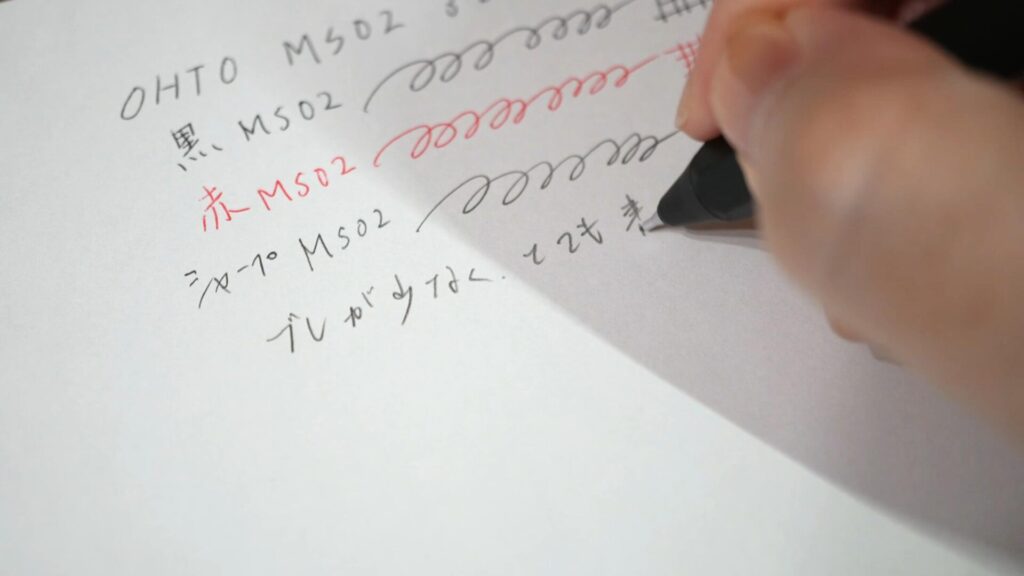 OHTO MS02
黒 MS02
赤 MS02
シャープ MS02
ブレが少なく、とても